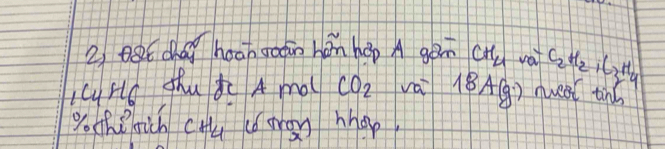 2) Đốt cháy hoàn toàn hỗn hợp A gồm CH4 và C2H2, C3H4
, C4H6 thu đc A mol CO2 và 18A(g) nước tính
% thể tích CH4 có trong hhợp.